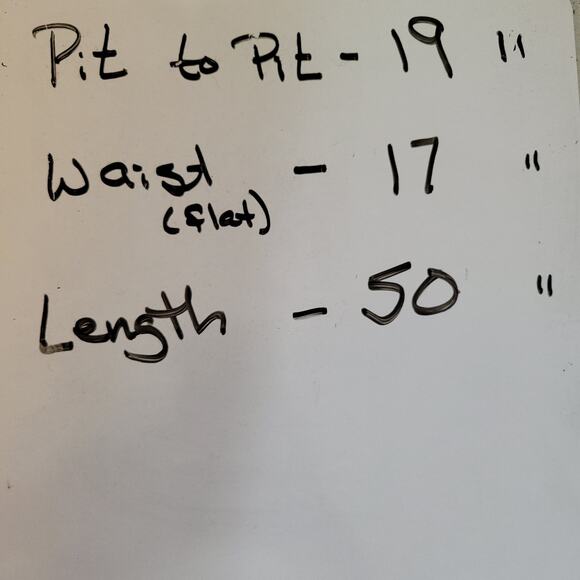 Pit to Pit - 19 "
Waist - 17 "
(flat)
Length - 50 "